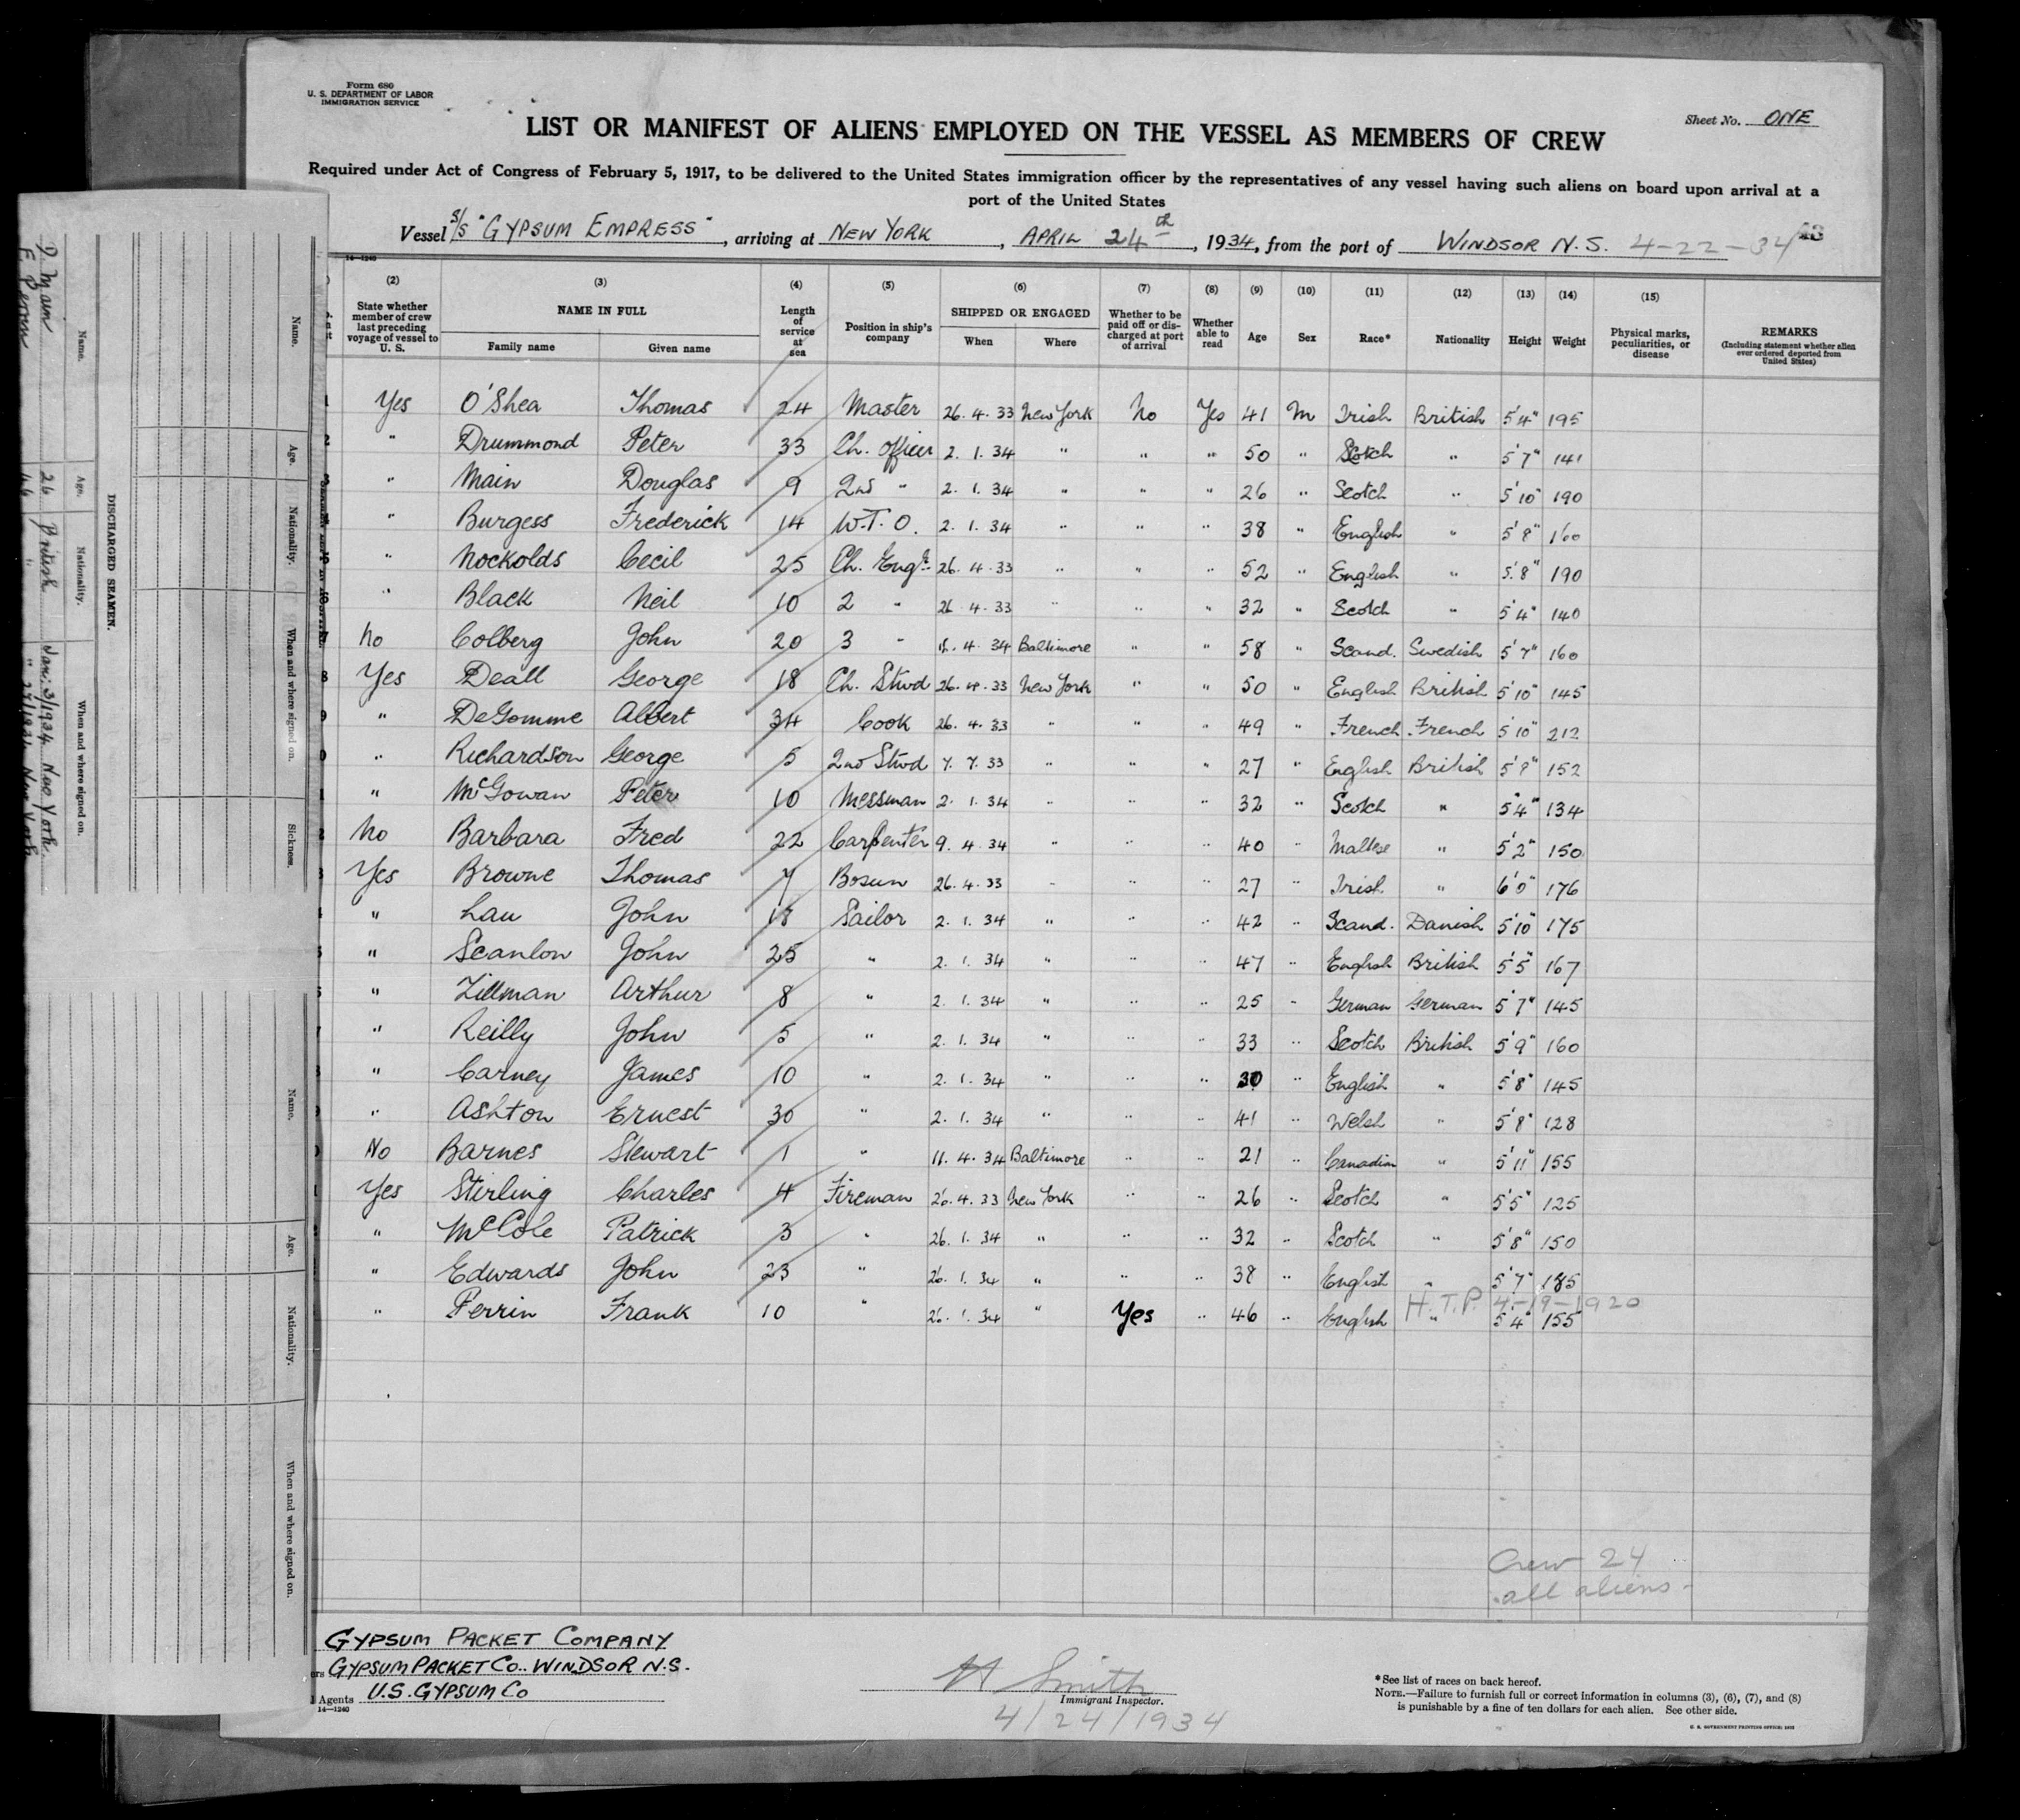 Form 680
U. S. DEPARTMENT OF LABOR
IMMIGRATION SERVICE
Sheet No. ONE
LIST OR MANIFEST OF ALIENS EMPLOYED ON THE VESSEL AS MEMBERS OF CREW
Required under Act of Congress of February 5, 1917, to be delivered to the United States immigration officer by the representatives of any vessel having such aliens on board upon arrival at a
port of the United States
Vessel S/S "GYPSUM EMPRESS", arriving at NEW YORK, APRIL 24th, 1934, from the port of WINDSOR N.S. 4-22-34
14—1240
(2) (3) (4) (5) (6) (7) (8) (9) (10) (11) (12) (13) (14) (15)
State whether member of crew last preceding voyage of vessel to U. S. NAME IN FULL Family name Given name Length of service at sea Position in ship's company SHIPPED OR ENGAGED When Where Whether to be paid off or discharged at port of arrival Whether able to read Age Sex Race* Nationality Height Weight Physical marks, peculiarities, or disease REMARKS (Including statement whether alien ever ordered deported from United States)
Yes O'Shea Thomas 24 Master 26.4.33 New York No Yes 41 M Irish British 5'4" 195
" Drummond Peter 33 Ch. Officer 2.1.34 " " " 50 " Scotch " 5'7" 141
" Main Douglas 9 2nd " 2.1.34 " " " 26 " Scotch " 5'10" 190
" Burgess Frederick 14 W.T.O. 2.1.34 " " " 38 " English " 5'8" 160
" Nockolds Cecil 25 Ch. Engr. 26.4.33 " " " 52 " English " 5'8" 190
" Black Neil 10 2 " 26.4.33 " " " 32 " Scotch " 5'4" 140
No Colberg John 20 3 " 4.34 Baltimore " " 58 " Scand. Swedish 5'7" 160
8 Yes Deall George 18 Ch. Stwd 26.4.33 New York " " 50 " English British 5'10" 145
9 " DeGomme Albert 34 Cook 26.4.33 " " " 49 " French French 5'10" 212
0 " Richardson George 5 2nd Stwd 7.7.33 " " " 27 " English British 5'8" 152
1 " McGowan Peter 10 Messman 2.1.34 " " " 32 " Scotch " 5'4" 134
2 No Barbara Fred 22 Carpenter 9.4.34 " " " 40 " Maltese " 5'2" 150
3 Yes Browne Thomas 7 Bosun 26.4.33 " " " 27 " Irish " 6'0" 176
" Lau John 18 Sailor 2.1.34 " " " 42 " Scand. Danish 5'10" 175
" Scanlon John 25 " 2.1.34 " " " 47 " English British 5'5" 167
" Zillman Arthur 8 " 2.1.34 " " " 25 " German German 5'7" 145
" Reilly John 5 " 2.1.34 " " " 33 " Scotch British 5'9" 160
" Carney James 10 " 2.1.34 " " " 30 " English " 5'8" 145
" Ashton Ernest 30 " 2.1.34 " " " 41 " Welsh " 5'8" 128
No Barnes Stewart 1 " 11.4.34 Baltimore " " 21 " Canadian " 5'11" 155
Yes Stirling Charles 4 Fireman 26.4.33 New York " " 26 " Scotch " 5'5" 125
" McCole Patrick 3 " 26.1.34 " " " 32 " Scotch " 5'8" 150
" Edwards John 23 " 26.1.34 " " " 38 " English " 5'7" 185
H.T.P. 4-19-1920
" Perrin Frank 10 " 26.1.34 " Yes " 46 " English " 5'4" 155
Crew 24
all aliens
GYPSUM PACKET COMPANY
GYPSUM PACKET CO.. WINDSOR N.S.
Agents U.S. GYPSUM CO
14—1240
H Smith
Immigrant Inspector.
4/24/1934
*See list of races on back hereof.
NOTE.—Failure to furnish full or correct information in columns (3), (6), (7), and (8)
is punishable by a fine of ten dollars for each alien. See other side.
U. S. GOVERNMENT PRINTING OFFICE: 1932
DISCHARGED SEAMEN.
Name. Age. Nationality. When and where signed on.
D. Main 26 British Jan. 3/1934 New York
F. Perrin 46 " " 27/1934 New York
Name. Age. Nationality. When and where signed on. Sickness.
Name. Age. Nationality. When and where signed on.